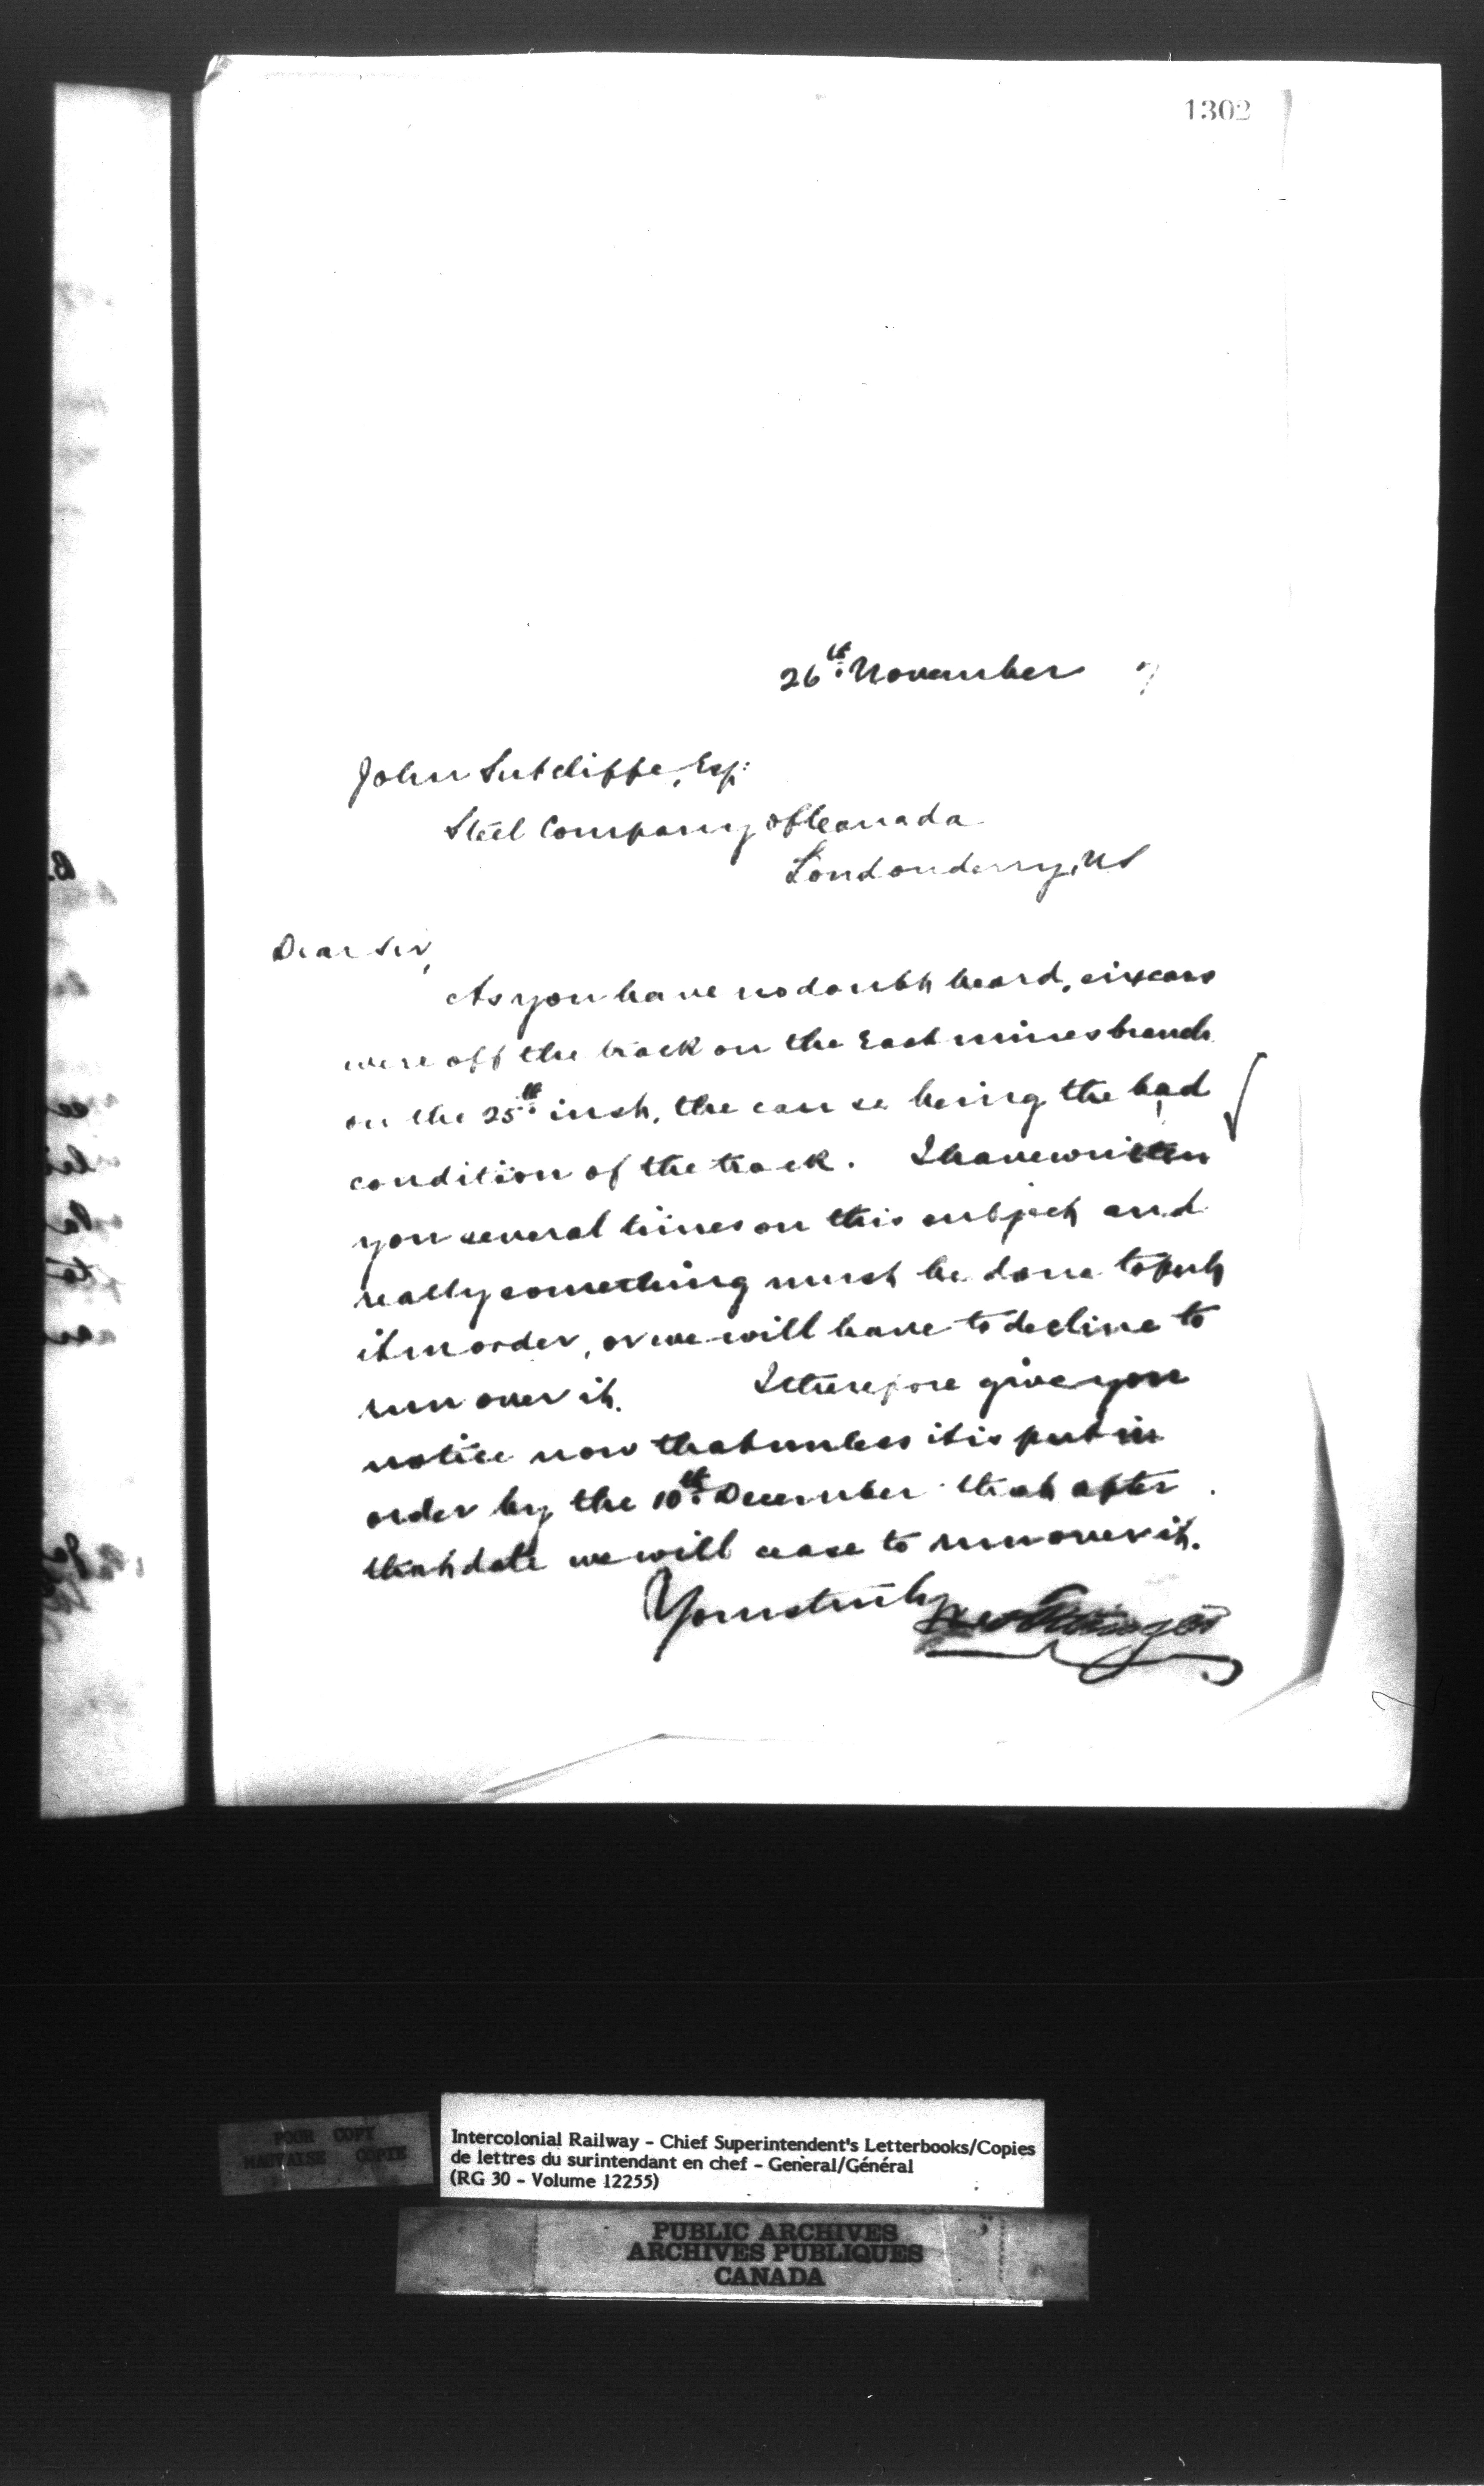 1302
26th November 7
John Sutcliffe, Esq:
Steel Company of Canada
Londonderry, NS
Dear Sir,
As you have no doubt heard, six cars
were off the track on the East mines branch
on the 25th inst, the cause being the bad
condition of the track. I have written
you several times on this subject and
really something must be done to put
it in order, or we will have to decline to
run over it. I therefore give you
notice now that unless it is put in
order by the 10th December that after
that date we will cease to run over it.
Yours truly
POOR COPY
MAUVAISE COPIE
Intercolonial Railway - Chief Superintendent's Letterbooks/Copies
de lettres du surintendant en chef - General/Général
(RG 30 - Volume 12255)
PUBLIC ARCHIVES
ARCHIVES PUBLIQUES
CANADA